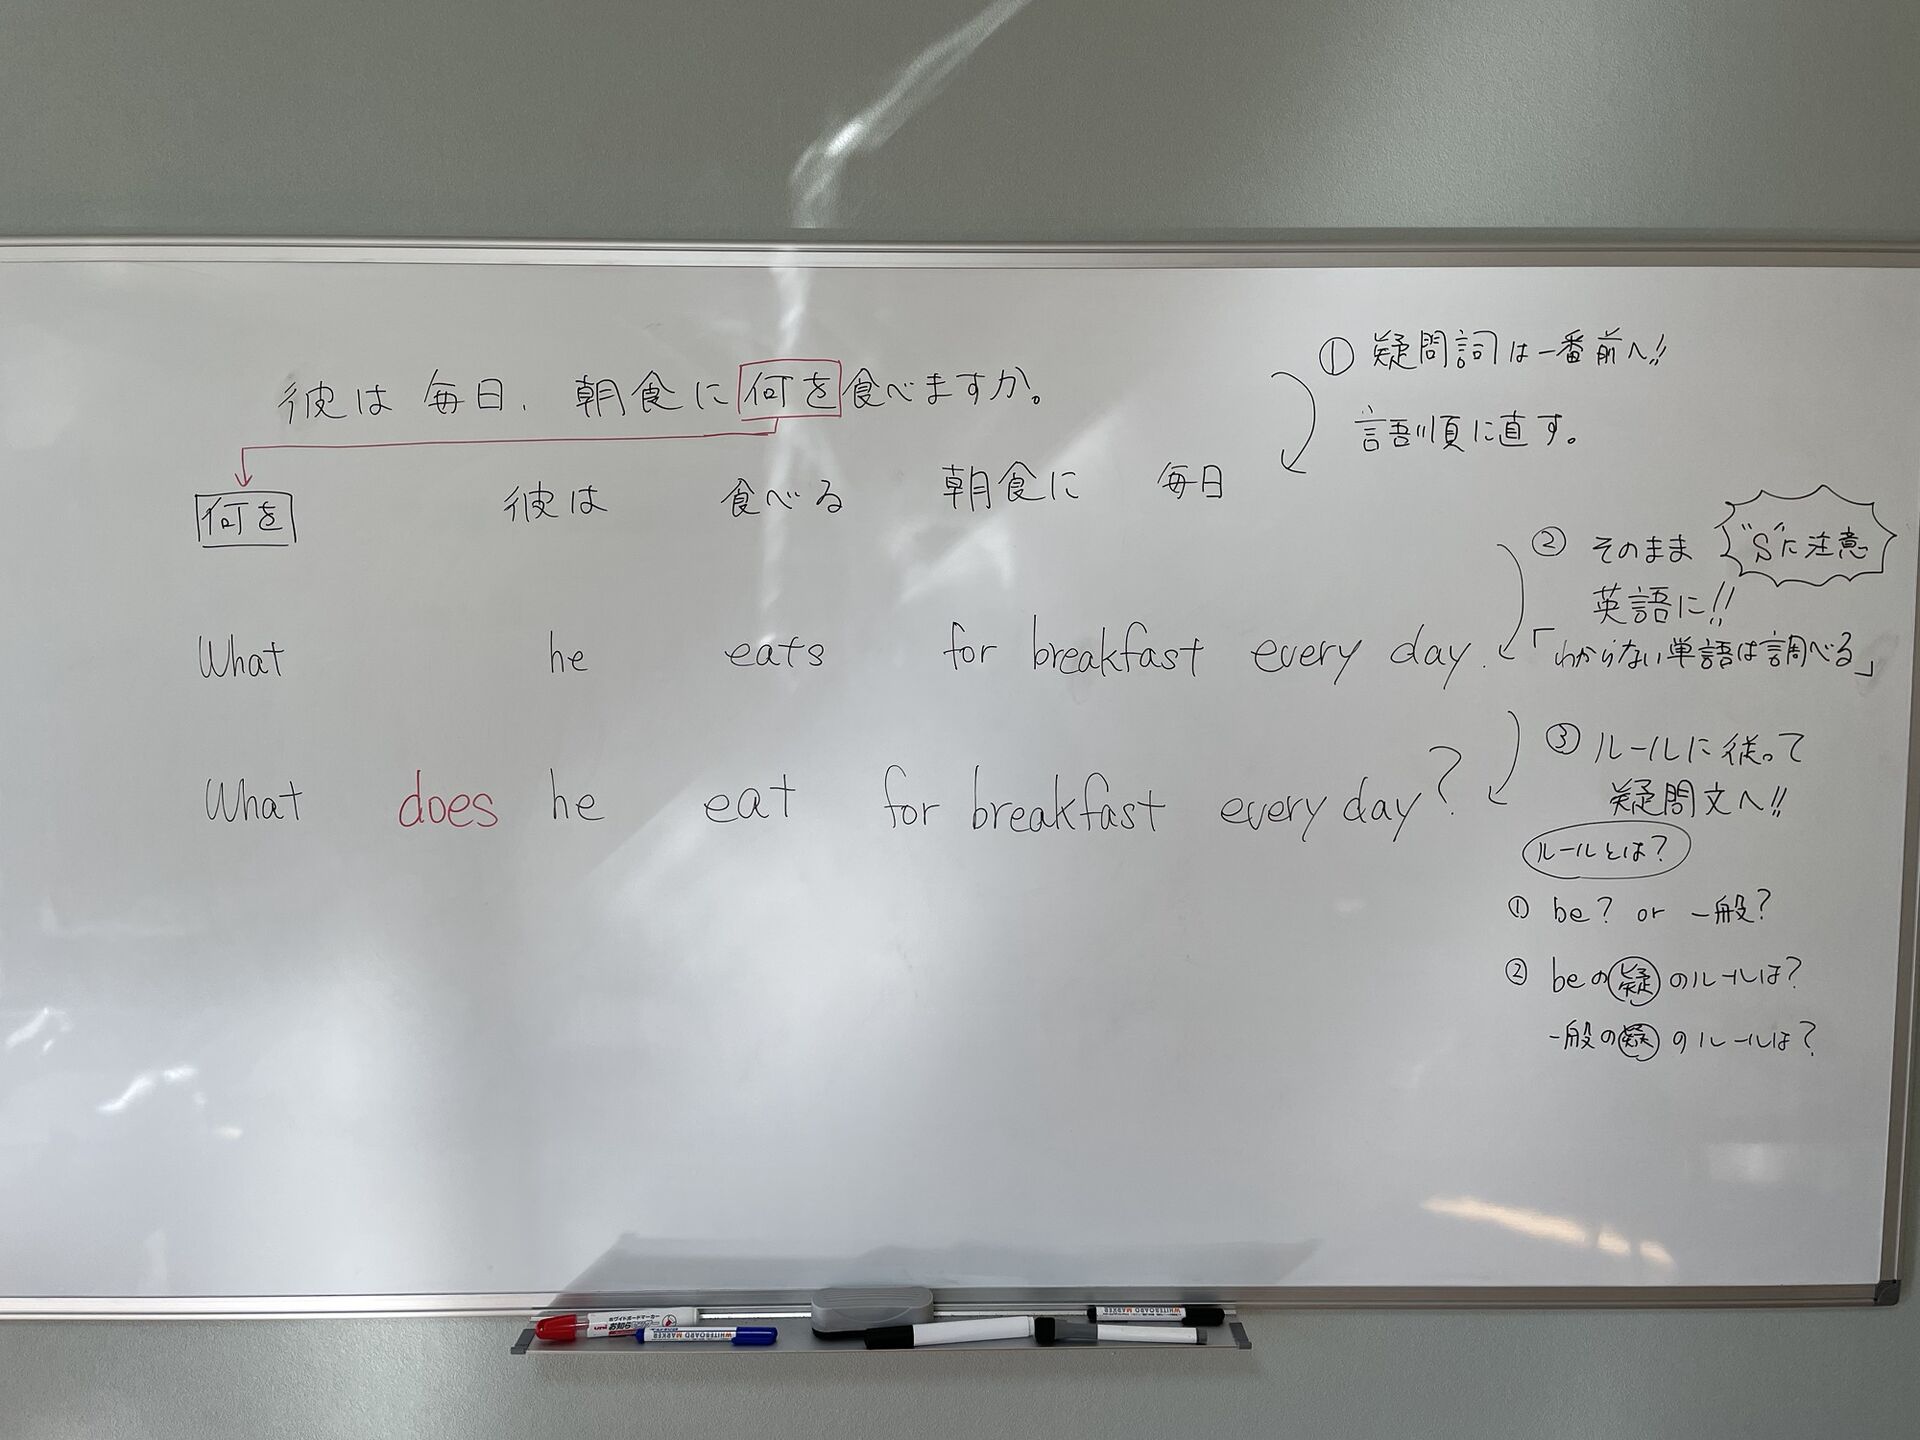 彼は毎日、朝食に何を食べますか。
何を 彼は 食べる 朝食に 毎日
What he eats for breakfast every day.
What does he eat for breakfast every day?
① 疑問詞は一番前へ!!
語順に直す。
② そのまま
英語に!!
"S"に注意
「わからない単語は調べる」
③ ルールに従って
疑問文へ!!
ルールとは?
① be? or 一般?
② beの疑のルールは?
一般の疑のルールは?
uni
ホワイトボードマーカー
お知らセンサー
WHITEBOARD MARKER
WHITEBOARD MARKER